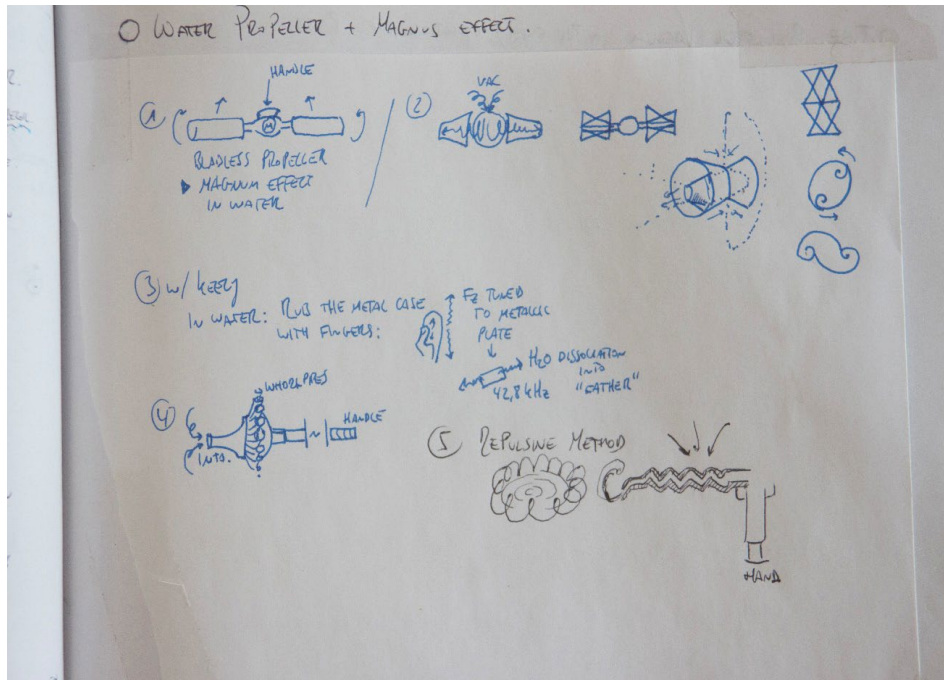 ○ WATER PROPELLER + MAGNUS EFFECT.
① HANDLE
M
BLADLESS PROPELLER
▶ MAGNUM EFFECT
IN WATER
② VAC
③ W/ KEELY
IN WATER: RUB THE METAL CASE
WITH FINGERS:
Fz TUNED
TO METALLIC
PLATE
H2O DISSOCIATION
INTO
42,8 kHz "EATHER"
④ WHORL PRES
HANDLE
INTO.
⑤ REPULSIVE METHOD
HAND